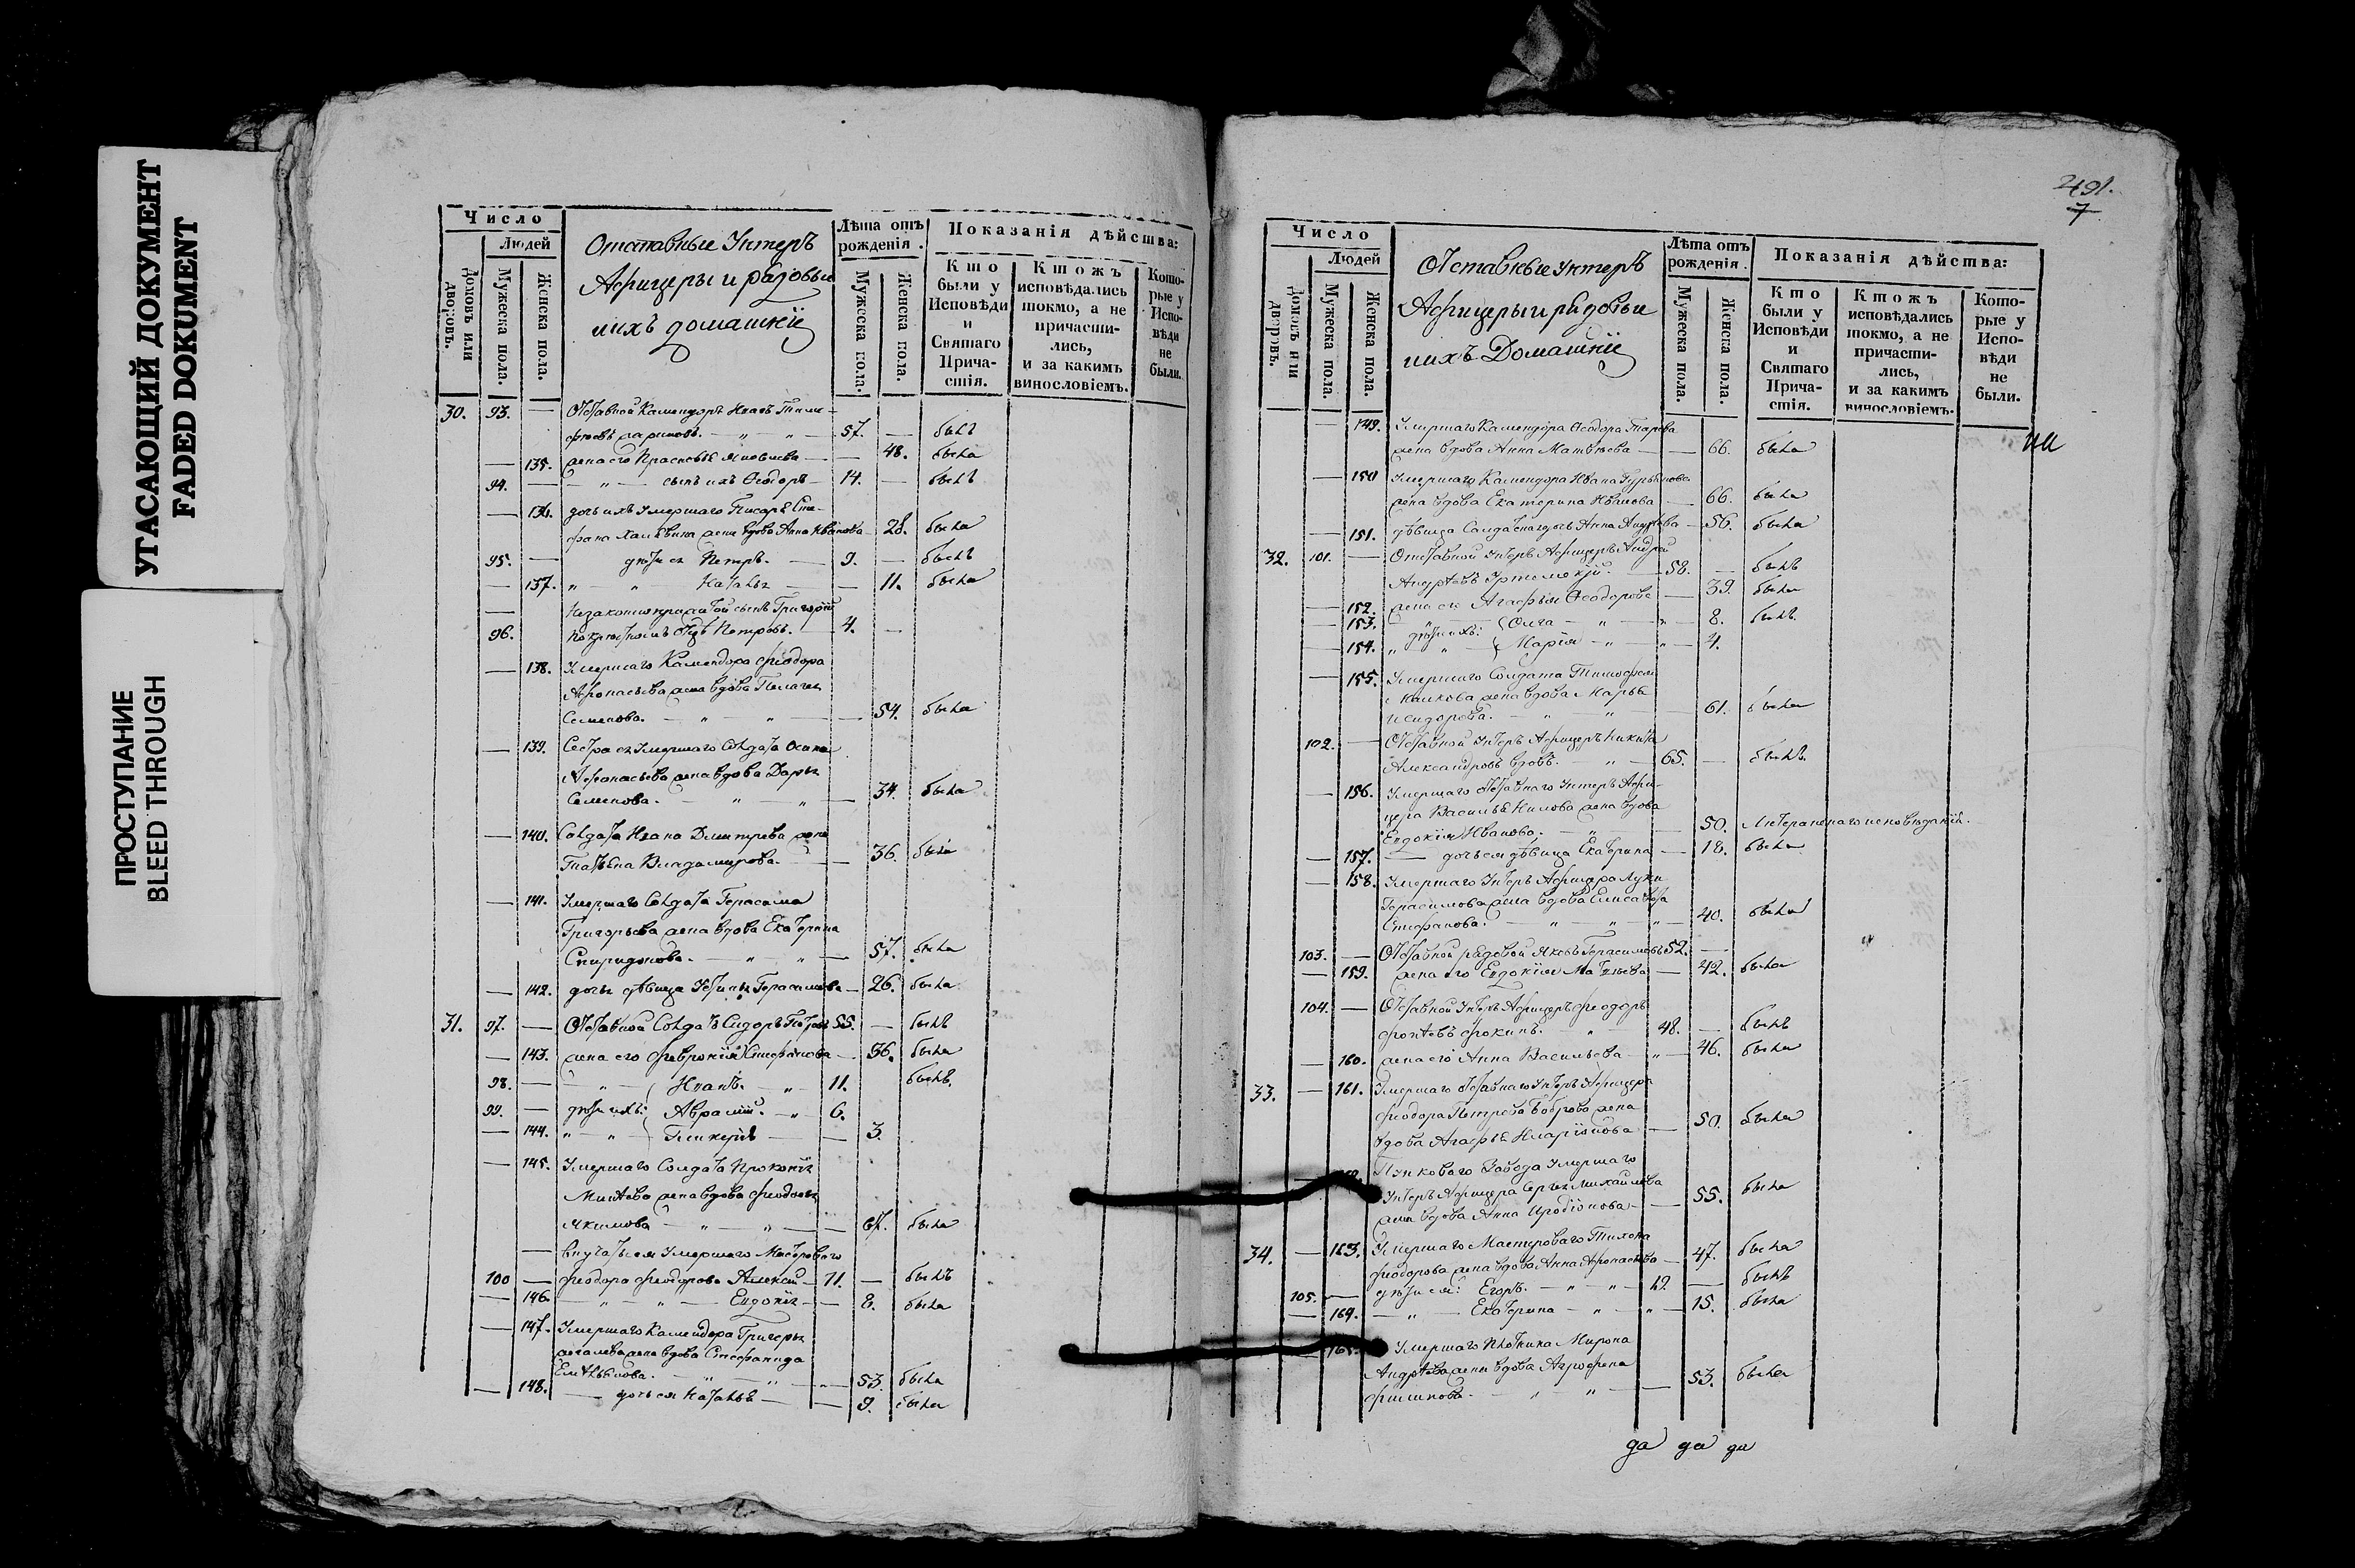 УГАСАЮЩИЙ ДОКУМЕНТ
FADED DOKUMENT
ПРОСТУПАНИЕ
BLEED THROUGH
Число
Людей
Домовъ или дворовъ.
Мужеска пола.
Женска пола.
Отставные Унтеръ
Афицеры и рядовые
ихъ домашніи
Лѣта отъ рожденія.
Мужеска пола.
Женска пола.
Показанія дѣйства:
Кто были у Исповѣди и Святаго Причастія.
Ктожъ исповѣдались токмо, а не причастились, и за какимъ винословіемъ.
Которые у Исповѣди не были.
30. 93. — Отставной Камендоръ Иванъ
57. — былъ
— 135. жена его — 48. была
94. — сынъ ихъ Ѳеодоръ 14. — былъ
— 136. дочь ихъ умершаго Писаря Сте-
фана жена вдова Анна Иванова — 28. была
95. — дѣти ея Петръ. 9. — былъ
— 137. " " Наталья — 11. была
Незаконнорожденной сынъ Григорій
96. Петровъ. 4. —
— 138. Умершаго Камендора Феодора
Афонасьева жена вдова Пелагея
Семенова. — 54. была
— 139. Сестра ея умершаго Солдата Осипа
Афонасьева жена вдова Дарья
Семенова. — 34. была
— 140. Солдата Ивана Дмитрева жена
Татьяна Владимирова. — 36. была
— 141. Умершаго Солдата Герасима
Григорьева жена вдова Екатерина
Спиридонова. — 57. была
— 142. дочь дѣвица Устинья Герасимова — 26. была
31. 97. — Отставной Солдатъ Сидоръ Петровъ 55. — былъ
— 143. жена его Феврониія Стефанова — 36. была
98. — " — Иванъ. " 11. былъ.
99. — дѣти ихъ: Аврамій. " 6.
— 144. " " Гликерія — 3.
— 145. Умершаго Солдата Прокопія
жена вдова Феодосья
Якимова — 67. была
— умершаго Мастероваго
100 — Феодора Феодорова Алексей 11. — былъ
— 146. — " " Евдокія — 8. была
— 147. Умершаго Камендора Григорья
жена вдова Стефанида
53. была
— 148. — дочь ея Наталья — 9. была
491.
7
Число
Людей
Домовъ или дворовъ.
Мужеска пола.
Женска пола.
Отставные Унтеръ
Афицеры и рядовые
ихъ Домашніи
Лѣта отъ рожденія.
Мужеска пола.
Женска пола.
Показанія дѣйства:
Кто были у Исповѣди и Святаго Причастія.
Ктожъ исповѣдались токмо, а не причастились, и за какимъ винословіемъ.
Которые у Исповѣди не были.
— 149. Умершаго Камендора Ѳеодора
жена вдова Анна Матвѣева — 66. была
— 150 Умершаго Камендора Ивана
жена вдова Екатерина Иванова — 66. была
— 151. дѣвица Солдатская дочь Анна Андрѣева — 56. была
32. 101. — Отставной Унтеръ Афицеръ Андрей
Андрѣевъ 58. — былъ
— 152. жена его Агафья Ѳеодорова — 39. была
— 153. дѣти ихъ: Олга — " — 8. былъ.
— 154. " " Марія " — 4.
— 155. Умершаго Солдата Тимофея
жена вдова Марья
Исидорова. — 61. была
102. — Отставной Унтеръ Афицеръ Никита
Александровъ вдовъ. 65. — былъ.
— 156. Умершаго отставнаго Унтеръ Афи-
цера Василья Нилова жена вдова
Евдокія Иванова. — 50. Лютеранскаго исповѣданія.
— 157. — дочь ея дѣвица Екатерина — 18. была
— 158. Умершаго Унтеръ Афицера Луки
Герасимова жена вдова Елисавета
Стефанова. — 40. была
103. — Отставной рядовой Яковъ Герасимовъ 52. —
— 159. жена его Евдокія Матвѣева — 42. была
104. — Отставной Унтеръ Афицеръ Феодоръ
48. — былъ
— 160. жена его Анна Васильева " 46. была
33. — 161. Умершаго отставнаго Унтеръ Афицера
Феодора Петрова Боброва жена
вдова Агафья Иларіонова — 50. была
Завода умершаго
Унтеръ Афицера Сергея Михайлова
жена вдова Анна Иродіонова — 55. была
34. — 163. Умершаго Мастероваго Тихона
Феодорова жена вдова Анна Афонасьева — 47. была
105. — дѣти ея: Егоръ. 12 — былъ
— 164. — " Екатерина " — 15. была
165. Умершаго Плотника Мирона
Андрѣева жена вдова Агрофена
Филипова. — 53. была
да да да